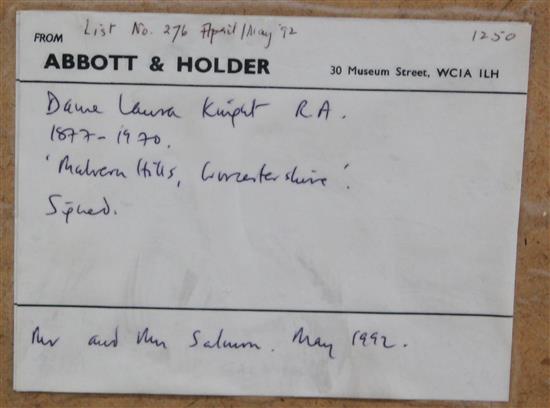 List No. 276 April/May '92
1250
FROM
ABBOTT & HOLDER
30 Museum Street, WC1A 1LH
Dame Laura Knight R A.
1877-1970.
'Malvern Hills, Worcestershire'.
Signed.
Mr and Mrs Salmon. May 1992.